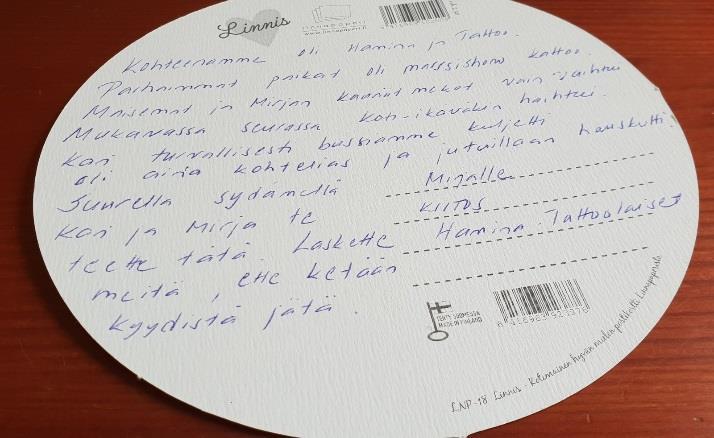 Linnis
Kohteenamme oli Hamina ja Tattoo.
Parhaimmat paikat oli massishow kattoo.
Maisemat ja Mirjan kauniit mekot vain vaihtui
Mukavassa seurassa koti-ikäväkin haihtui.
Kari turvallisesti bussiamme kuljetti
oli aina kohtelias ja jutuillaan hauskutti.
Suurella sydämellä
Kari ja Mirja te
teette tätä. Laskette
meitä, ette ketään
kyydistä jätä.
Mirjalle
KIITOS
Hamina Tattoolaiset
TEHTY SUOMESSA
MADE IN FINLAND
LNP-18 Linnis - Kotimainen hyvän mielen postikortti Lannapuodista